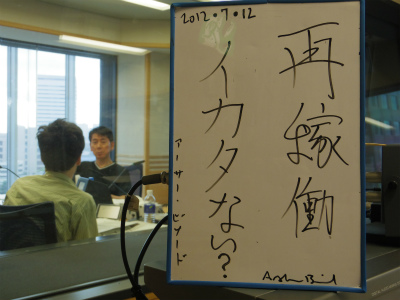 2012.7.12
再稼働
イカタない?
アーサー・ビナード